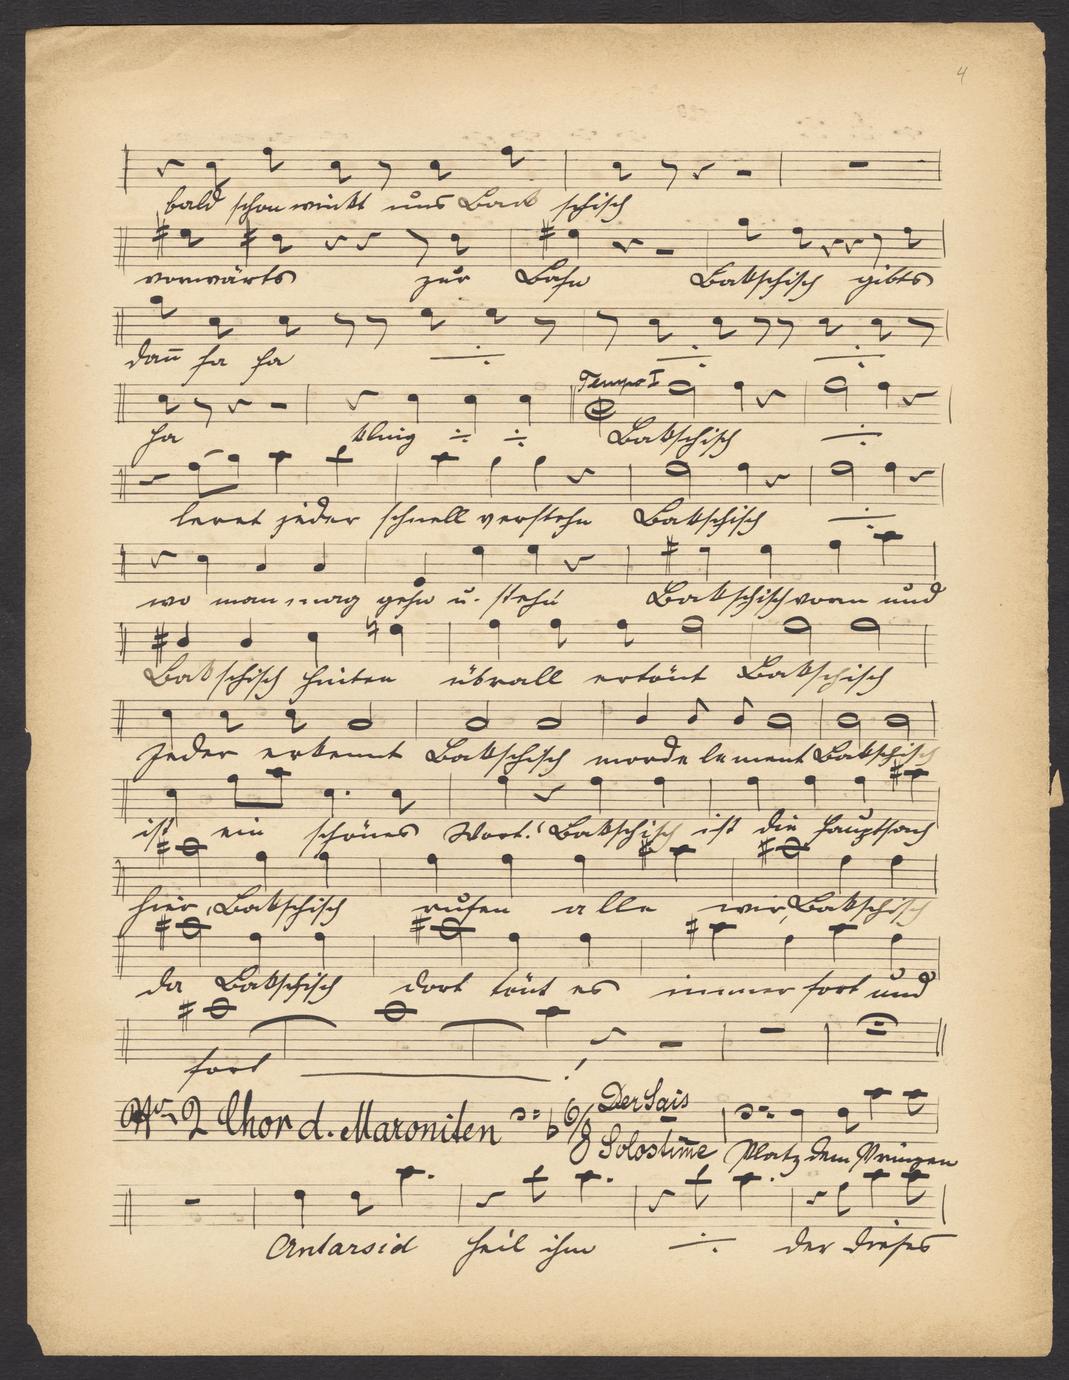 4
bald schon winkt uns Bak schisch
vorwärts zur Bahn Bakschisch gibts
dan̄ ha ha
Tempo I
ha kling Bakschisch
lernt jeder schnell verstehn Bakschisch
wo man mag gehn u. stehn Bakschisch vorn und
Bakschisch hinten übrall ertönt Bakschisch
Jeder erkennt Bakschisch mordelement Bakschisch
ist ein schönes Wort! Bakschisch ist die Hauptsach
hier, Bakschisch rufen alle wir, Bakschisch
da Bakschisch dort tönt es immer fort und
fort !
Nr. 2 Chor d. Maroniten 6/8 Der Sais
Solostim̄e Platz dem Prinzen
Antarsid heil ihm der dieses